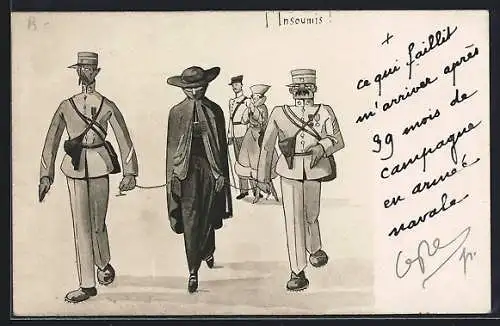 B-
l'Insoumis !
+
ce qui faillit
m'arriver après
39 mois de
campagne
en armée
navale